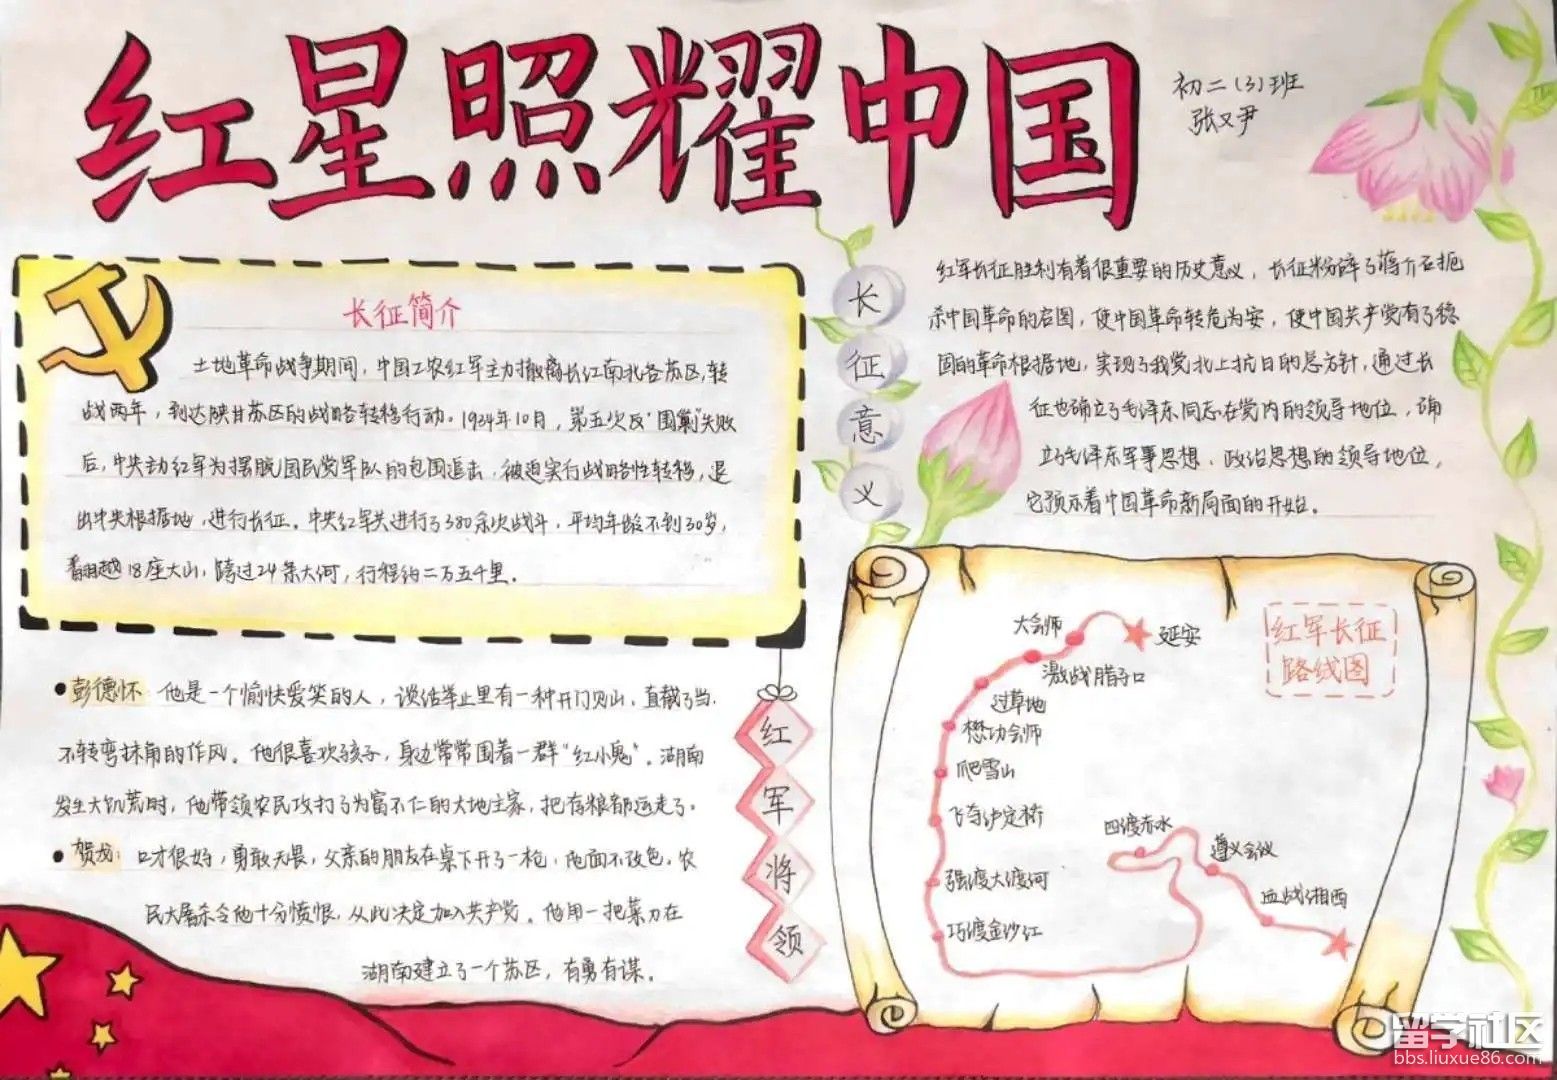 红星照耀中国
初二(3)班
张又尹
长征简介
土地革命战争期间，中国工农红军主力撤离长江南北各苏区，转
战两年，到达陕甘苏区的战略转移行动。1934年10月，第五次反“围剿”失败
后，中央主力红军为摆脱国民党军队的包围追击，被迫实行战略性转移，退
出中央根据地，进行长征。中央红军共进行了380余次战斗，平均年龄不到30岁，
翻越18座大山，跨过24条大河，行程约二万五千里。
长征意义
红军长征胜利有着很重要的历史意义，长征粉碎了蒋介石扼
杀中国革命的启图，使中国革命转危为安，使中国共产党有了稳
固的革命根据地，实现了我党北上抗日的总方针，通过长
征也确立了毛泽东同志在党内的领导地位，确
立了毛泽东军事思想、政治思想的领导地位，
它预示着中国革命新局面的开始。
彭德怀：他是一个愉快爱笑的人，谈话举止里有一种开门见山、直截了当、
不转弯抹角的作风。他很喜欢孩子，身边常常围着一群“红小鬼”。湖南
发生大饥荒时，他带领农民攻打了为富不仁的大地主家，把存粮都运走了。
贺龙：口才很好，勇敢无畏，父亲的朋友在桌下开了一枪，他面不改色。农
民大屠杀令他十分愤恨，从此决定加入共产党。他用一把菜刀在
湖南建立了一个苏区，有勇有谋。
红军将领
红军长征
路线图
大会师
延安
激战腊子口
过草地
懋功会师
爬雪山
飞夺泸定桥
强渡大渡河
巧渡金沙江
四渡赤水
遵义会议
血战湘西
留学社区
bbs.liuxue86.com